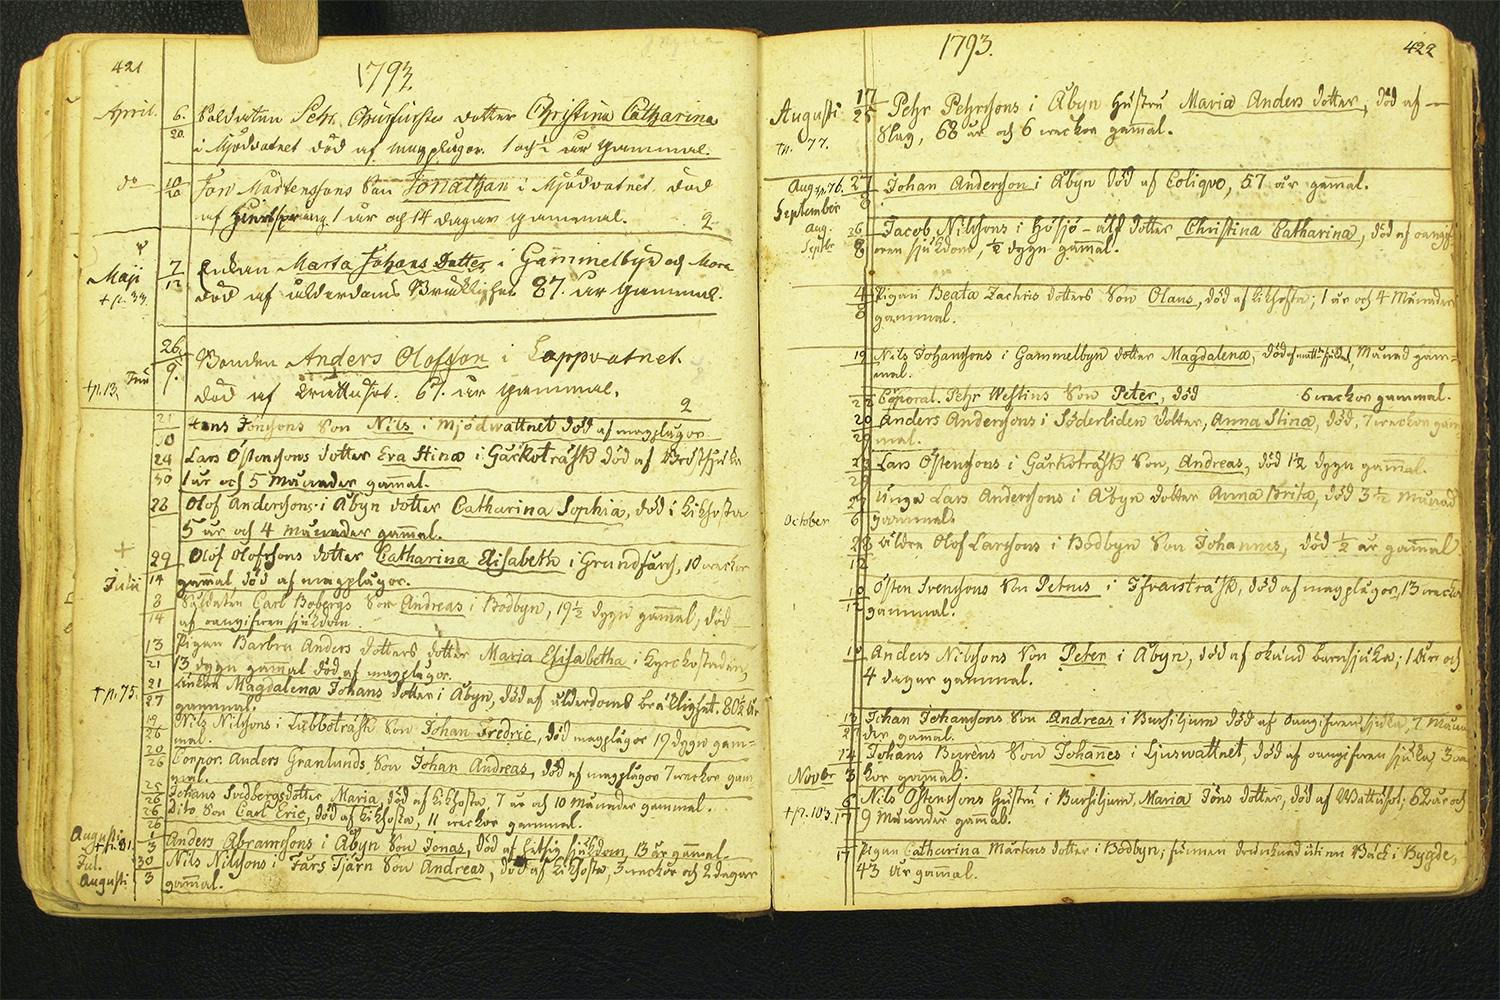 421
1793
April. 6. Soldaten dotter Christina Catharina
20. i Mjödvatnet död af magplågor. 1 och ½ år gammal.
do 10 Jon Mårtenssons Son Jonathan i Mjödvatnet död
20 af 1 år och 14 dagar gammal. 2
Maji 7 Enkan Marta Johans Dotter i Gammelbyn och Mora
+ p. 33. 12 död af ålderdoms Bräcklighet 87. år gammal.
26. Bonden Anders Olofsson i Lappvatnet.
+p. 13. Juni 9. död af 67. år gammal.
2
21 Hans Jönssons Son Nils i Mjödwattnet död af magplågor
30
24 Lars Östenssons dotter Eva Stina i Gärkoträsk död af Bröstsjuka
30 1 år och 5 Månader gamal.
28 Olof Anderssons i Åbyn dotter Catharina Sophia, död i Kikhosta
5 år och 4 Månader gam̄al.
29 Olof Olofssons dotter Catharina Elisabeth i Grundfors, 10 weckor
Julii 14 gam̄al död af magplågor.
8 Soldaten Carl Bobergs Son Andreas i Bodbyn, 19½ dygn gam̄al, död
14 af oangifwen sjukdom.
13 Pigan Barbru Anders dotters dotter Maria Elisabetha i Kyrckostaden,
21 13 dygn gamal död af magplågor.
+p. 75. 21 Enkan Magdalena Johans dotter i Åbyn, död af ålderdoms bräklighet. 80½ år
27 gammal.
19 Nils Nilssons i Lubboträsk Son Johan Fredric, död magplågor 19 dygn gam=
26 mal.
20 Corpor. Anders Granlunds Son Johan Andreas, död af magplågor 7 weckor gam
26 mal.
25 Johans Svedbergs dotter Maria, död af kikhosta, 7 år och 10 månader gammal.
26 Dito Son Carl Eric, död af kikhosta, 11 weckor gammal.
26
Augusti
+p. 31. 3 Anders Abramssons i Åbyn Son Jonas, död af hetsig sjukdom 13 år gam̄al.
Jul. 30 Nils Nilssons i Fårs Tjärn Son Andreas, död af kikhosta, 3 weckor och 2 dagar
Augusti 3 gam̄al.
422
1793.
Augusti 17 Pehr Pehrssons i Åbyn Hustru Maria Anders dotter, död af
25 Slag, 68 år och 6 weckor gam̄al.
+p. 77.
Aug. +p. 76. 27 Johan Andersson i Åbyn död af Colique, 57 år gam̄al.
September 8
Aug. 26 Jacob Nilssons i Högsjö-alf dotter Christina Catharina, död af oangif
Septbr 8 wen sjukdom, ½ dygn gam̄al.
4 Pigan Beata Zachris dotters Son Olaus, död af kikhosta; 1 år och 4 Månader
8 gammal.
19 Nils Johanssons i Gammelbyn dotter Magdalena, Månad gam=
mal.
Corporal. Pehr Westins Son Peter, död 6 weckor gammal.
22
20 Anders Anderssons i Söderliden dotter, Anna Stina, död, 7 weckor gam
29 mal.
Lars Östenssons i Gärkoträsk Son, Andreas, död 1½ dygn gam̄al.
29
Unga Lars Anderssons i Åbyn dotter Anna Brita, död 3½ Månad
October 6 gammal.
28 äldre Olof Larssons i Bodbyn Son Johannes, död ½ år gam̄al
12
10 Östen Svenssons Son Petrus i Ifvarsträsk, död af magplågor, 13 weckor
12 gammal.
Anders Nilssons Son Peter i Åbyn, död af okänd barnsjuka; 1 år och
4 dagar gammal.
Johan Johanssons Son Andreas i Bursiljum död af oangifwen sjuka, 7 Måna
27 der gamal.
24 Johans Burens Son Johanes i Ljuswattnet, död af oangifwen sjuka, 3 we
Novbr 3 kor gamal.
6 Nils Östenssons Hustru i Bursiljum, Maria Jöns dotter, död af Wattusot, 62 år och
+p. 103. 17 9 Månader gam̄al.
17 Pigan Catharina Mårtens dotter i Bodbyn; funnen drunknad uti en Bäck i Bygde,
43 år gamal.